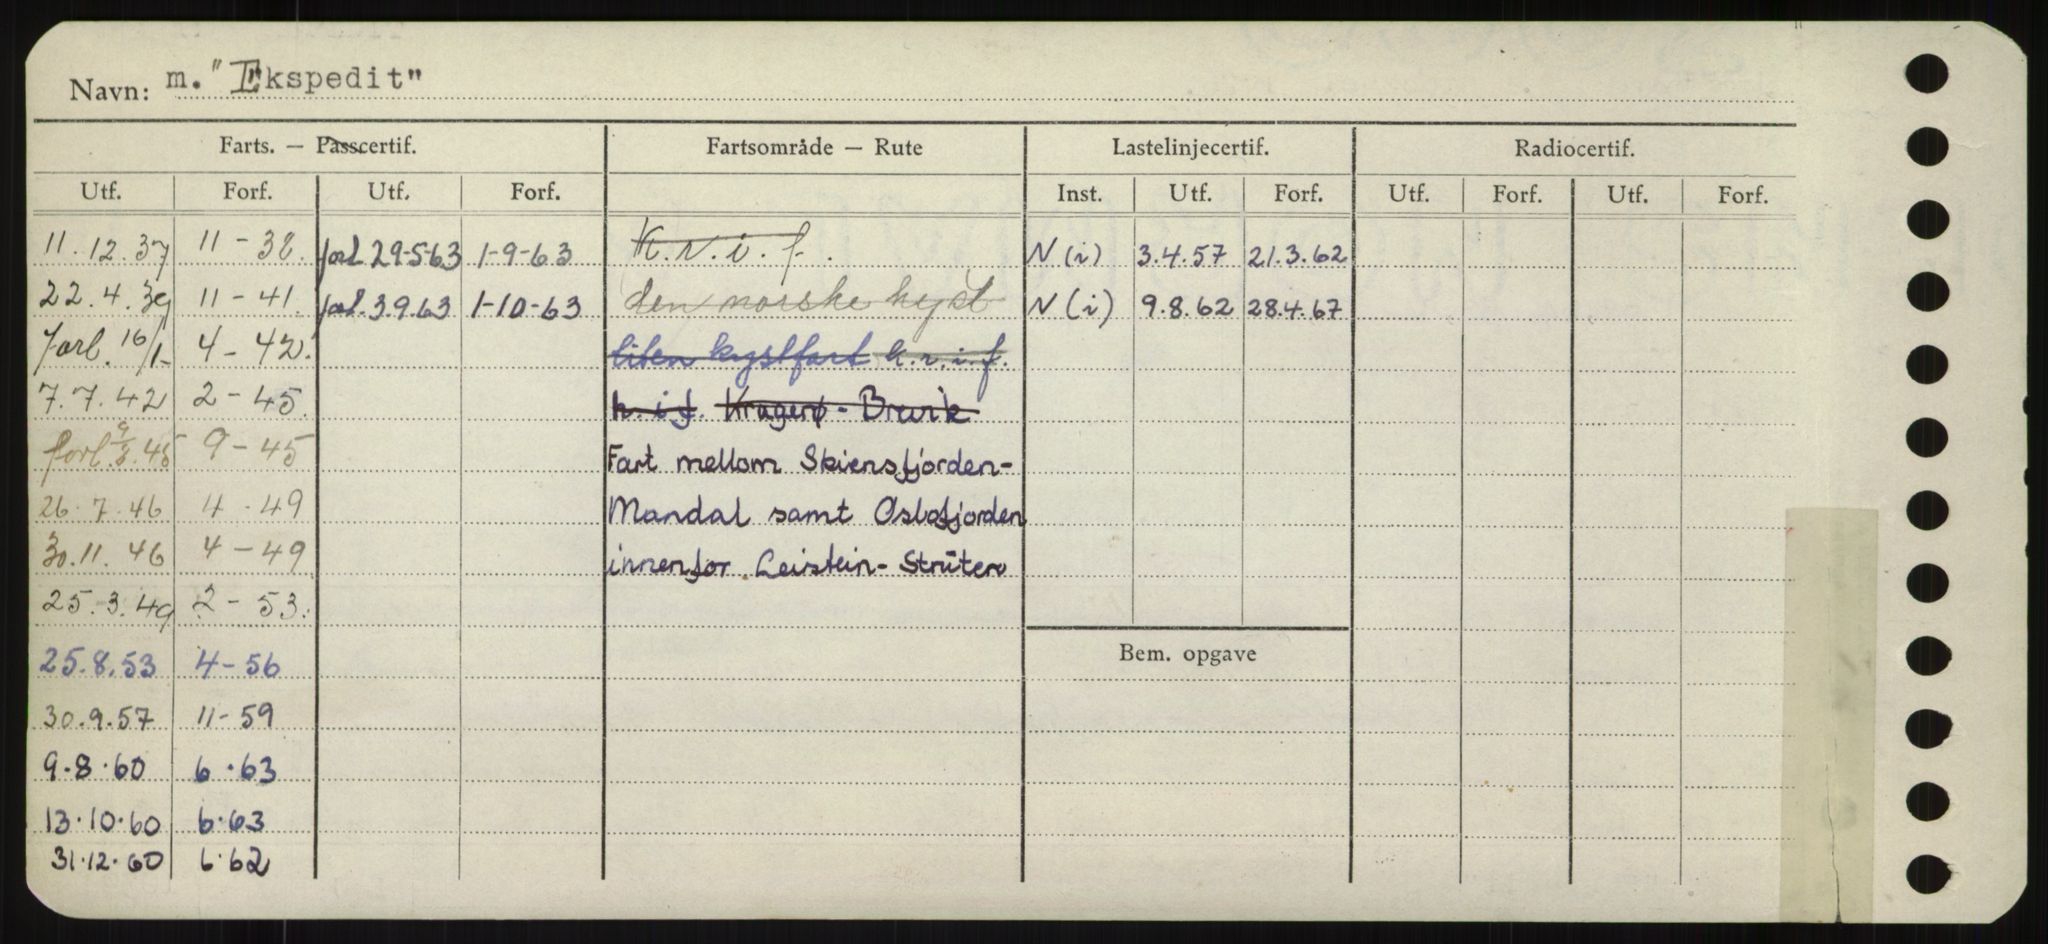 Navn: m. "Ekspedit"
Farts. — Passcertif. Fartsområde — Rute Lastelinjecertif. Radiocertif.
Utf. Forf. Utf. Forf. Inst. Utf. Forf. Utf. Forf. Utf. Forf.
11.12.37 11-38. forl. 29-5-63 1-9-63 K.r.i.f. N(i) 3.4.57 21.3.62
22.4.39 11-41. forl. 3.9.63 1-10-63 den norske kyst N(i) 9.8.62 28.4.67
forl. 16/1- 4-42. liten kystfart k.r.i.f.
7.7.42 2-45. k.i.f. Kragerø - Brevik
forl. 9/3.45 9-45 Fart mellom Skiensfjorden-
26.7.46 4.49 Mandal samt Oslofjorden
30.11.46 4-49 innenfor Leistein-Strüten
25.3.49 2-53.
Bem. opgave
25.8.53 4-56
30.9.57 11-59
9.8.60 6.63
13.10.60 6.63
31.12.60 6.62